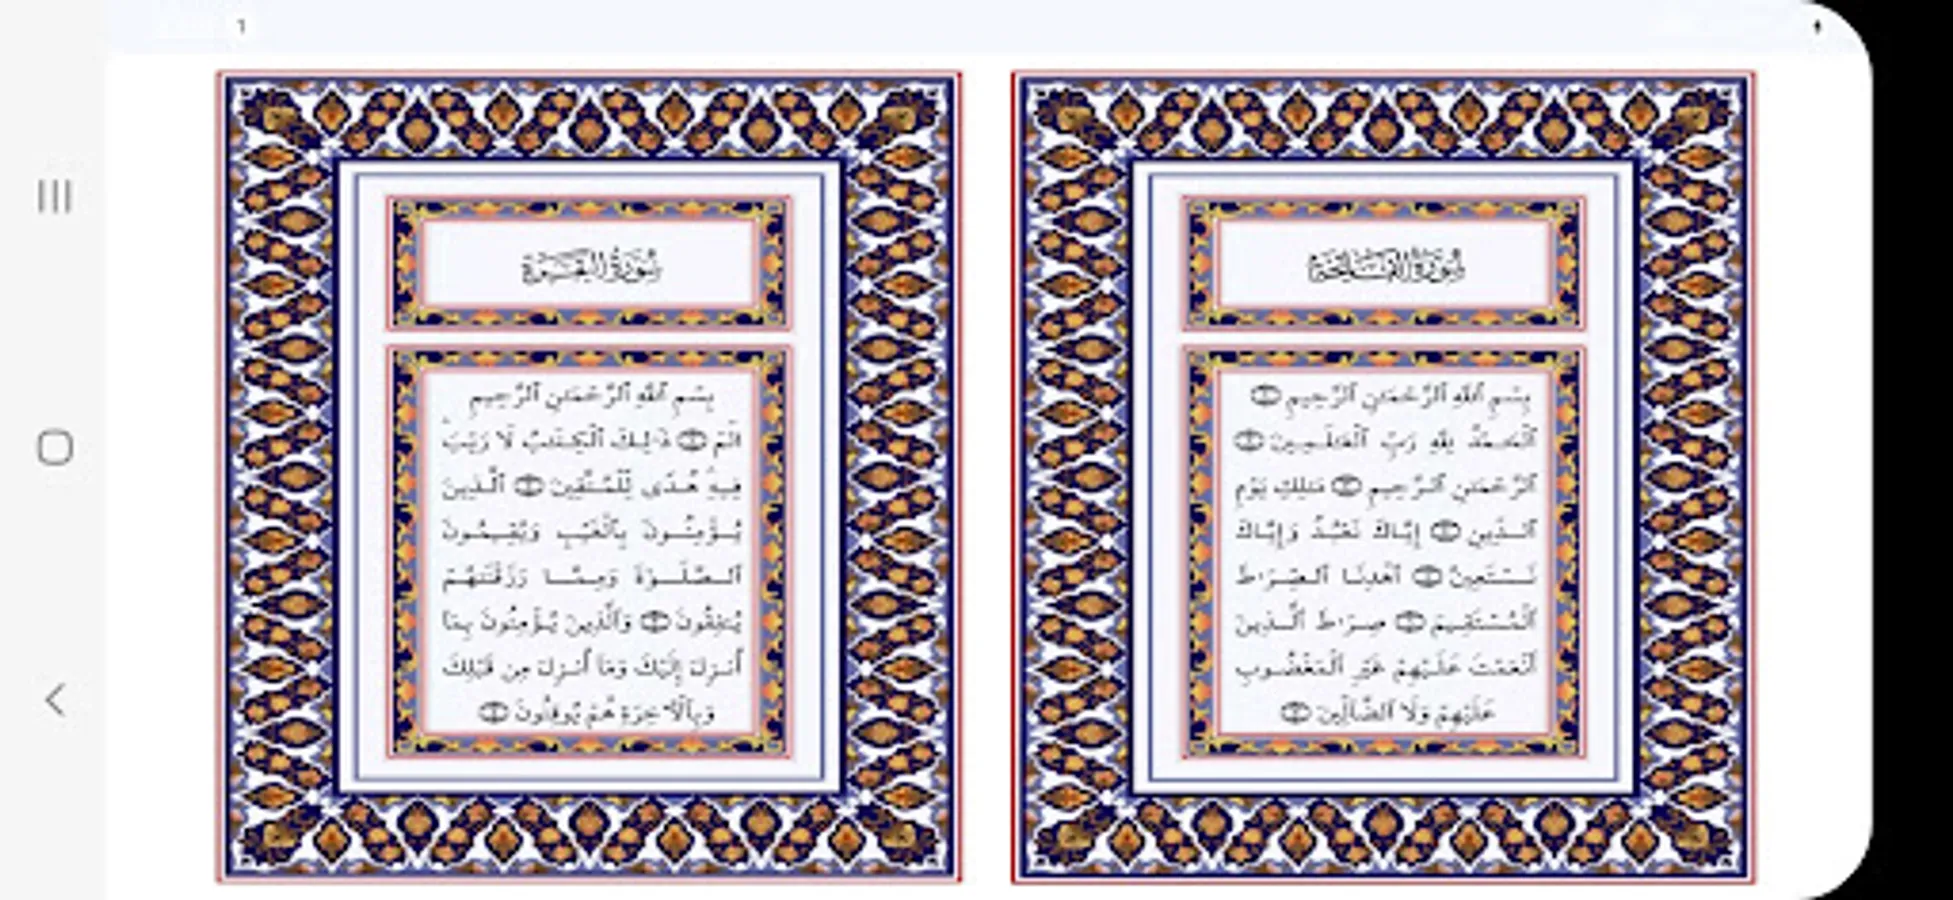 سُورَةُ الفَاتِحَةِ
بِسْمِ ٱللَّهِ ٱلرَّحْمَٰنِ ٱلرَّحِيمِ
ٱلْحَمْدُ لِلَّهِ رَبِّ ٱلْعَٰلَمِينَ
ٱلرَّحْمَٰنِ ٱلرَّحِيمِ مَٰلِكِ يَوْمِ
ٱلدِّينِ إِيَّاكَ نَعْبُدُ وَإِيَّاكَ
نَسْتَعِينُ ٱهْدِنَا ٱلصِّرَٰطَ
ٱلْمُسْتَقِيمَ صِرَٰطَ ٱلَّذِينَ
أَنْعَمْتَ عَلَيْهِمْ غَيْرِ ٱلْمَغْضُوبِ
عَلَيْهِمْ وَلَا ٱلضَّآلِّينَ
1
سُورَةُ البَقَرَةِ
بِسْمِ ٱللَّهِ ٱلرَّحْمَٰنِ ٱلرَّحِيمِ
الٓمٓ ذَٰلِكَ ٱلْكِتَٰبُ لَا رَيْبَ
فِيهِ هُدًى لِّلْمُتَّقِينَ ٱلَّذِينَ
يُؤْمِنُونَ بِٱلْغَيْبِ وَيُقِيمُونَ
ٱلصَّلَوٰةَ وَمِمَّا رَزَقْنَٰهُمْ
يُنفِقُونَ وَٱلَّذِينَ يُؤْمِنُونَ بِمَآ
أُنزِلَ إِلَيْكَ وَمَآ أُنزِلَ مِن قَبْلِكَ
وَبِٱلْءَاخِرَةِ هُمْ يُوقِنُونَ